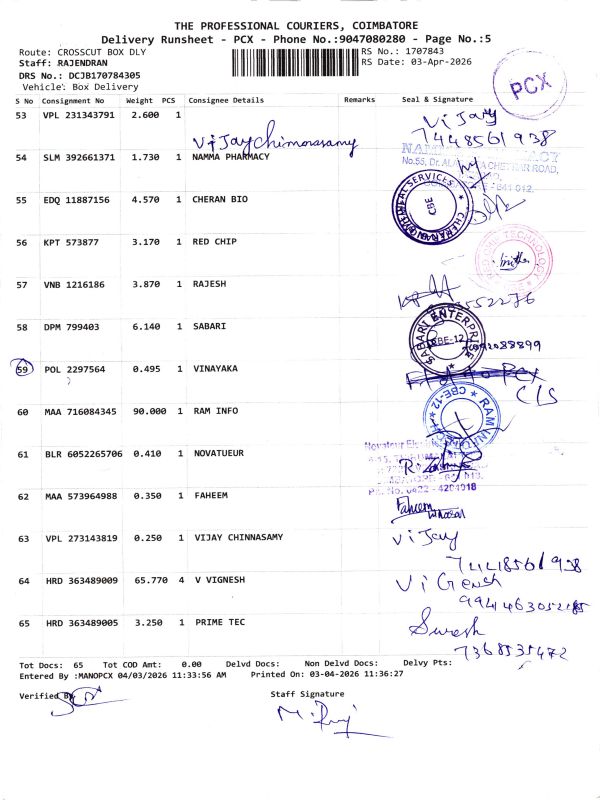 THE PROFESSIONAL COURIERS, COIMBATORE
Delivery Runsheet - PCX - Phone No.:9047080280 - Page No.:5
Route: CROSSCUT BOX DLY
RS No.: 1707843
Staff: RAJENDRAN
RS Date: 03-Apr-2026
DRS No.: DCJB170784305
Vehicle: Box Delivery
PCX
S No Consignment No Weight PCS Consignee Details Remarks Seal & Signature
53 VPL 231343791 2.600 1
Vijay
7448561938
54 SLM 392661371 1.730 1 NAMMA PHARMACY
55 EDQ 11887156 4.570 1 CHERAN BIO
CBE
56 KPT 573877 3.170 1 RED CHIP
57 VNB 1216186 3.870 1 RAJESH
58 DPM 799403 6.140 1 SABARI
SABARI ENTERPRISE
CBE-12
59 POL 2297564 0.495 1 VINAYAKA
60 MAA 716084345 90.000 1 RAM INFO
CBE-12
61 BLR 6052265706 0.410 1 NOVATUEUR
62 MAA 573964988 0.350 1 FAHEEM
Faheem
63 VPL 273143819 0.250 1 VIJAY CHINNASAMY
Vijay
64 HRD 363489009 65.770 4 V VIGNESH
ViGnesh
65 HRD 363489005 3.250 1 PRIME TEC
Suresh
7368535472
Tot Docs: 65 Tot COD Amt: 0.00 Delvd Docs: Non Delvd Docs: Delvy Pts:
Entered By :MANOPCX 04/03/2026 11:33:56 AM Printed On: 03-04-2026 11:36:27
Verified By
Staff Signature